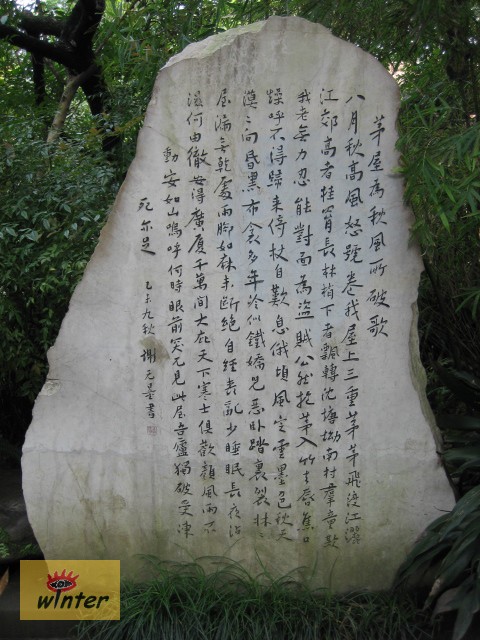 茅屋為秋風所破歌
八月秋高風怒號卷我屋上三重茅茅飛渡江灑
江郊高者挂罥長林梢下者飄轉沈塘坳南村羣童欺
我老無力忍能對面為盜賊公然抱茅入竹去唇焦口
燥呼不得歸來倚杖自歎息俄頃風定雲墨色秋天
漠〻向昏黑布衾多年冷似鐵嬌兒惡卧踏裏裂牀〻
屋漏無乾處雨腳如麻未斷絕自經喪亂少睡眠長夜沾
溼何由徹安得廣厦千萬間大庇天下寒士俱歡顏風雨不
動安如山嗚呼何時眼前突兀見此屋吾廬獨破受凍
死亦足
乙未九秋 謝无量書
winter